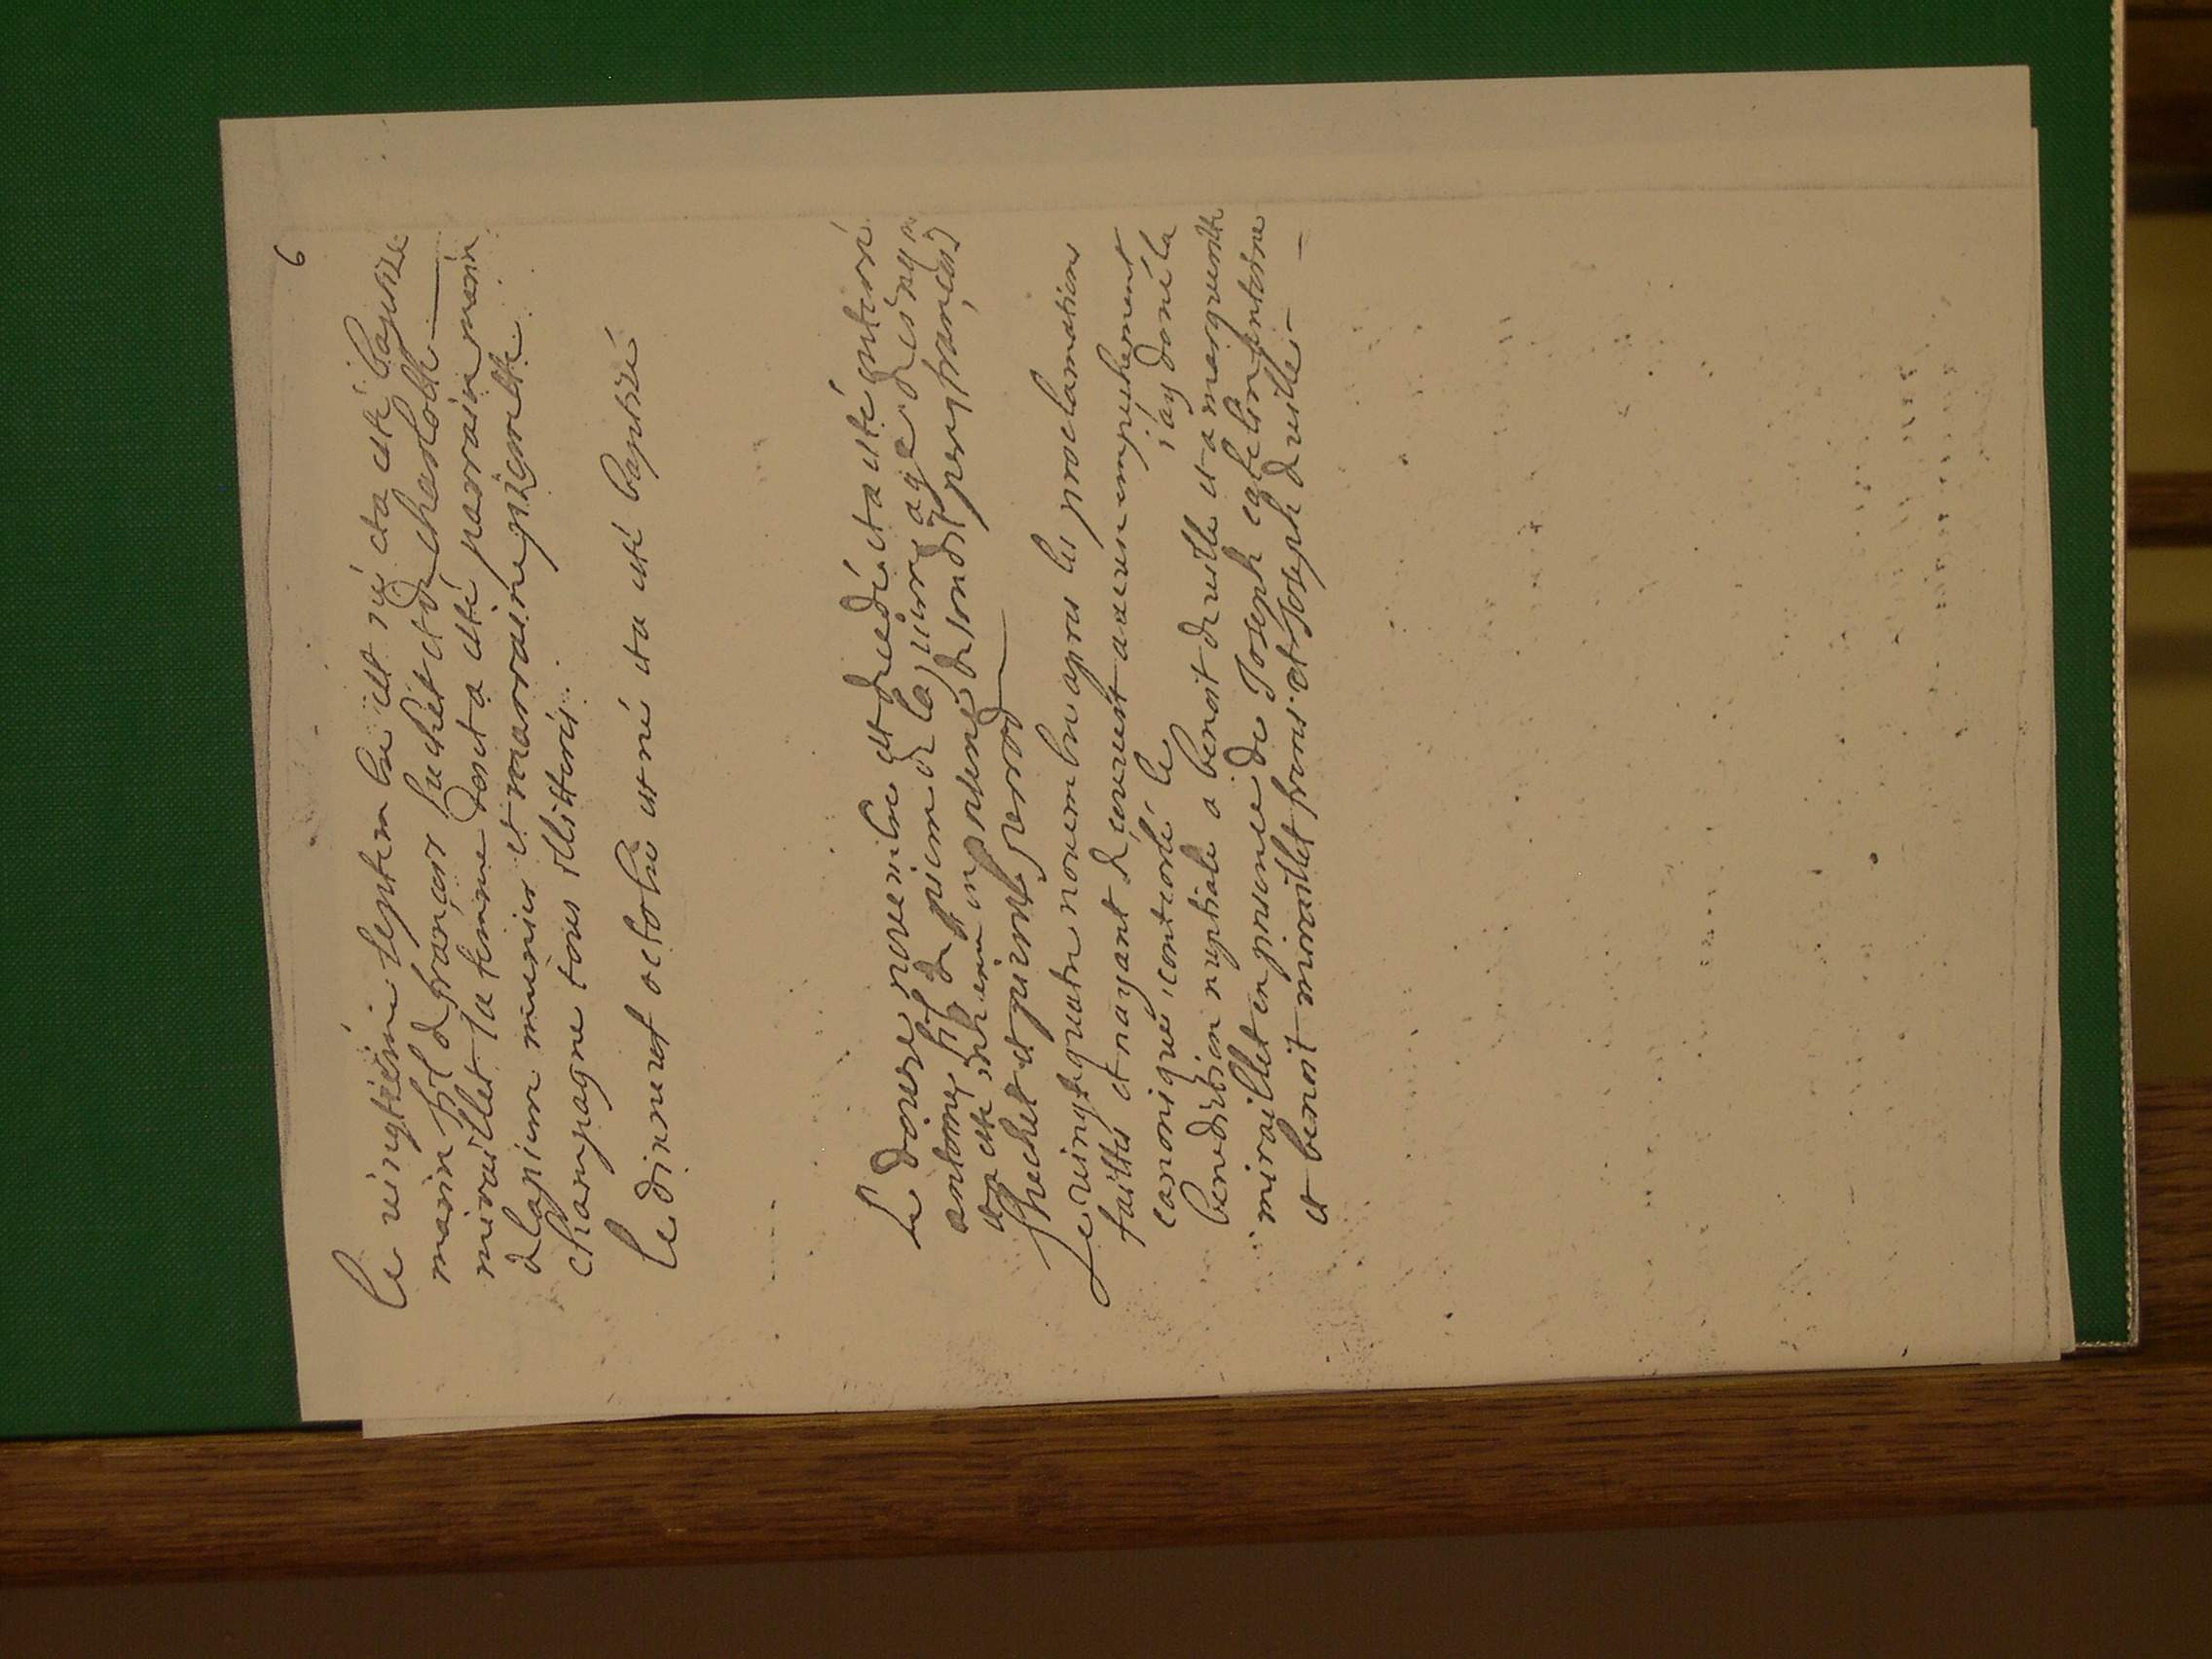 6
le vingtieme septembre est né et a esté baptizé
marin fil de françois fuchet et de charlotte
miraillet sa femme dont a esté parrain marin
de lapierre meunier et marraine pierrette
champagne tous illitterés
le dixneuf octobre est né et a esté baptizé
le douse novembre est decedé et a esté enterré
antoine fil de pierre de la agé de
et a esté en presence de son pere françois
fuchet et pierre perrod
Le vingt quatre novembre apres les proclamations
faittes et nayant decouvert aucun empechement
canonique, contracté le j'ay doné la
benediction nuptiale a benoit deville et a marguerite
miraillet en presence de Joseph antoine
et benoit miraillet freres et Joseph deville